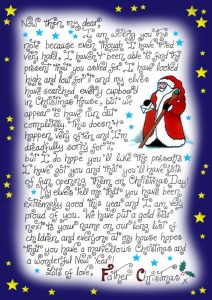 Now then my dear
I am writing you this
note because even though I have tried
very hard, I haven't been able to find the
present that you asked for. I have looked
high and low for it and my elves
have searched every cupboard
in Christmas House, but we
appear to have run out
completely. This doesn't
happen very often and I'm
dreadfully sorry for it,
but I do hope you'll like the presents
I have got you and that you'll have lots
of fun opening them on Christmas Day!
My elves tell me that you have been
extremely good this year and I am very
proud of you. We have put a gold star
next to your name on our long list of
children and everyone at my house hopes
that you have a marvellous Christmas and
a wonderful New Year
Lots of love, Father Christmas x